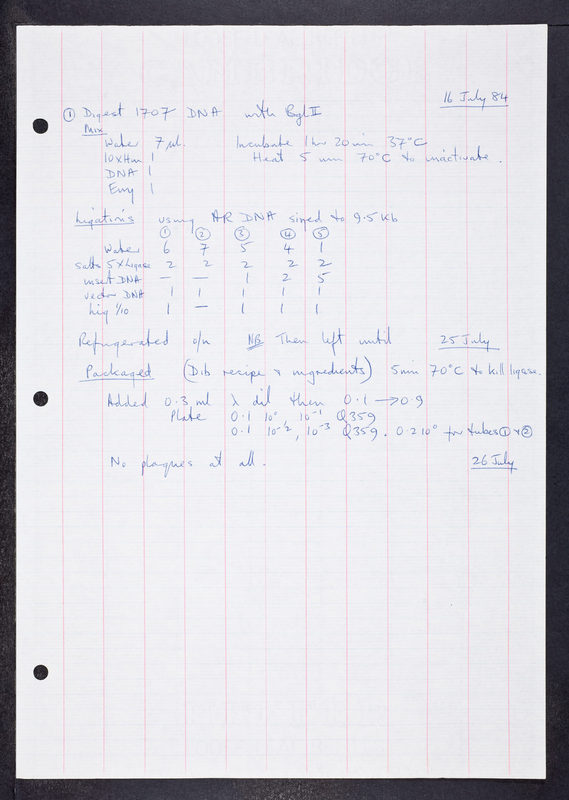 16 July 84
① Digest 1707 DNA with BglII
Mix
Water 7 µl. Incubate 1 hr 20 min 37°C
10xHin 1 Heat 5 min 70°C to inactivate.
DNA 1
Enz 1
Ligations using DNA sized to 9.5 kb
① ② ③ ④ ⑤
Water 6 7 5 4 1
salts 5 x ligase 2 2 2 2 2
insert DNA — — 1 2 5
vector DNA 1 1 1 1 1
lig 1/10 1 — 1 1 1
Refrigerated o/n NB Then left until 25 July
Packaged (Dib recipe & ingredients) 5 min 70°C to kill ligase.
Added 0.3 ml λ dil then 0.1 → 0.9
Plate 0.1 10° 10⁻¹ Q359
0.1 10⁻², 10⁻³ Q359. 0.2 10° for tubes ① & ②
No plaques at all. 26 July